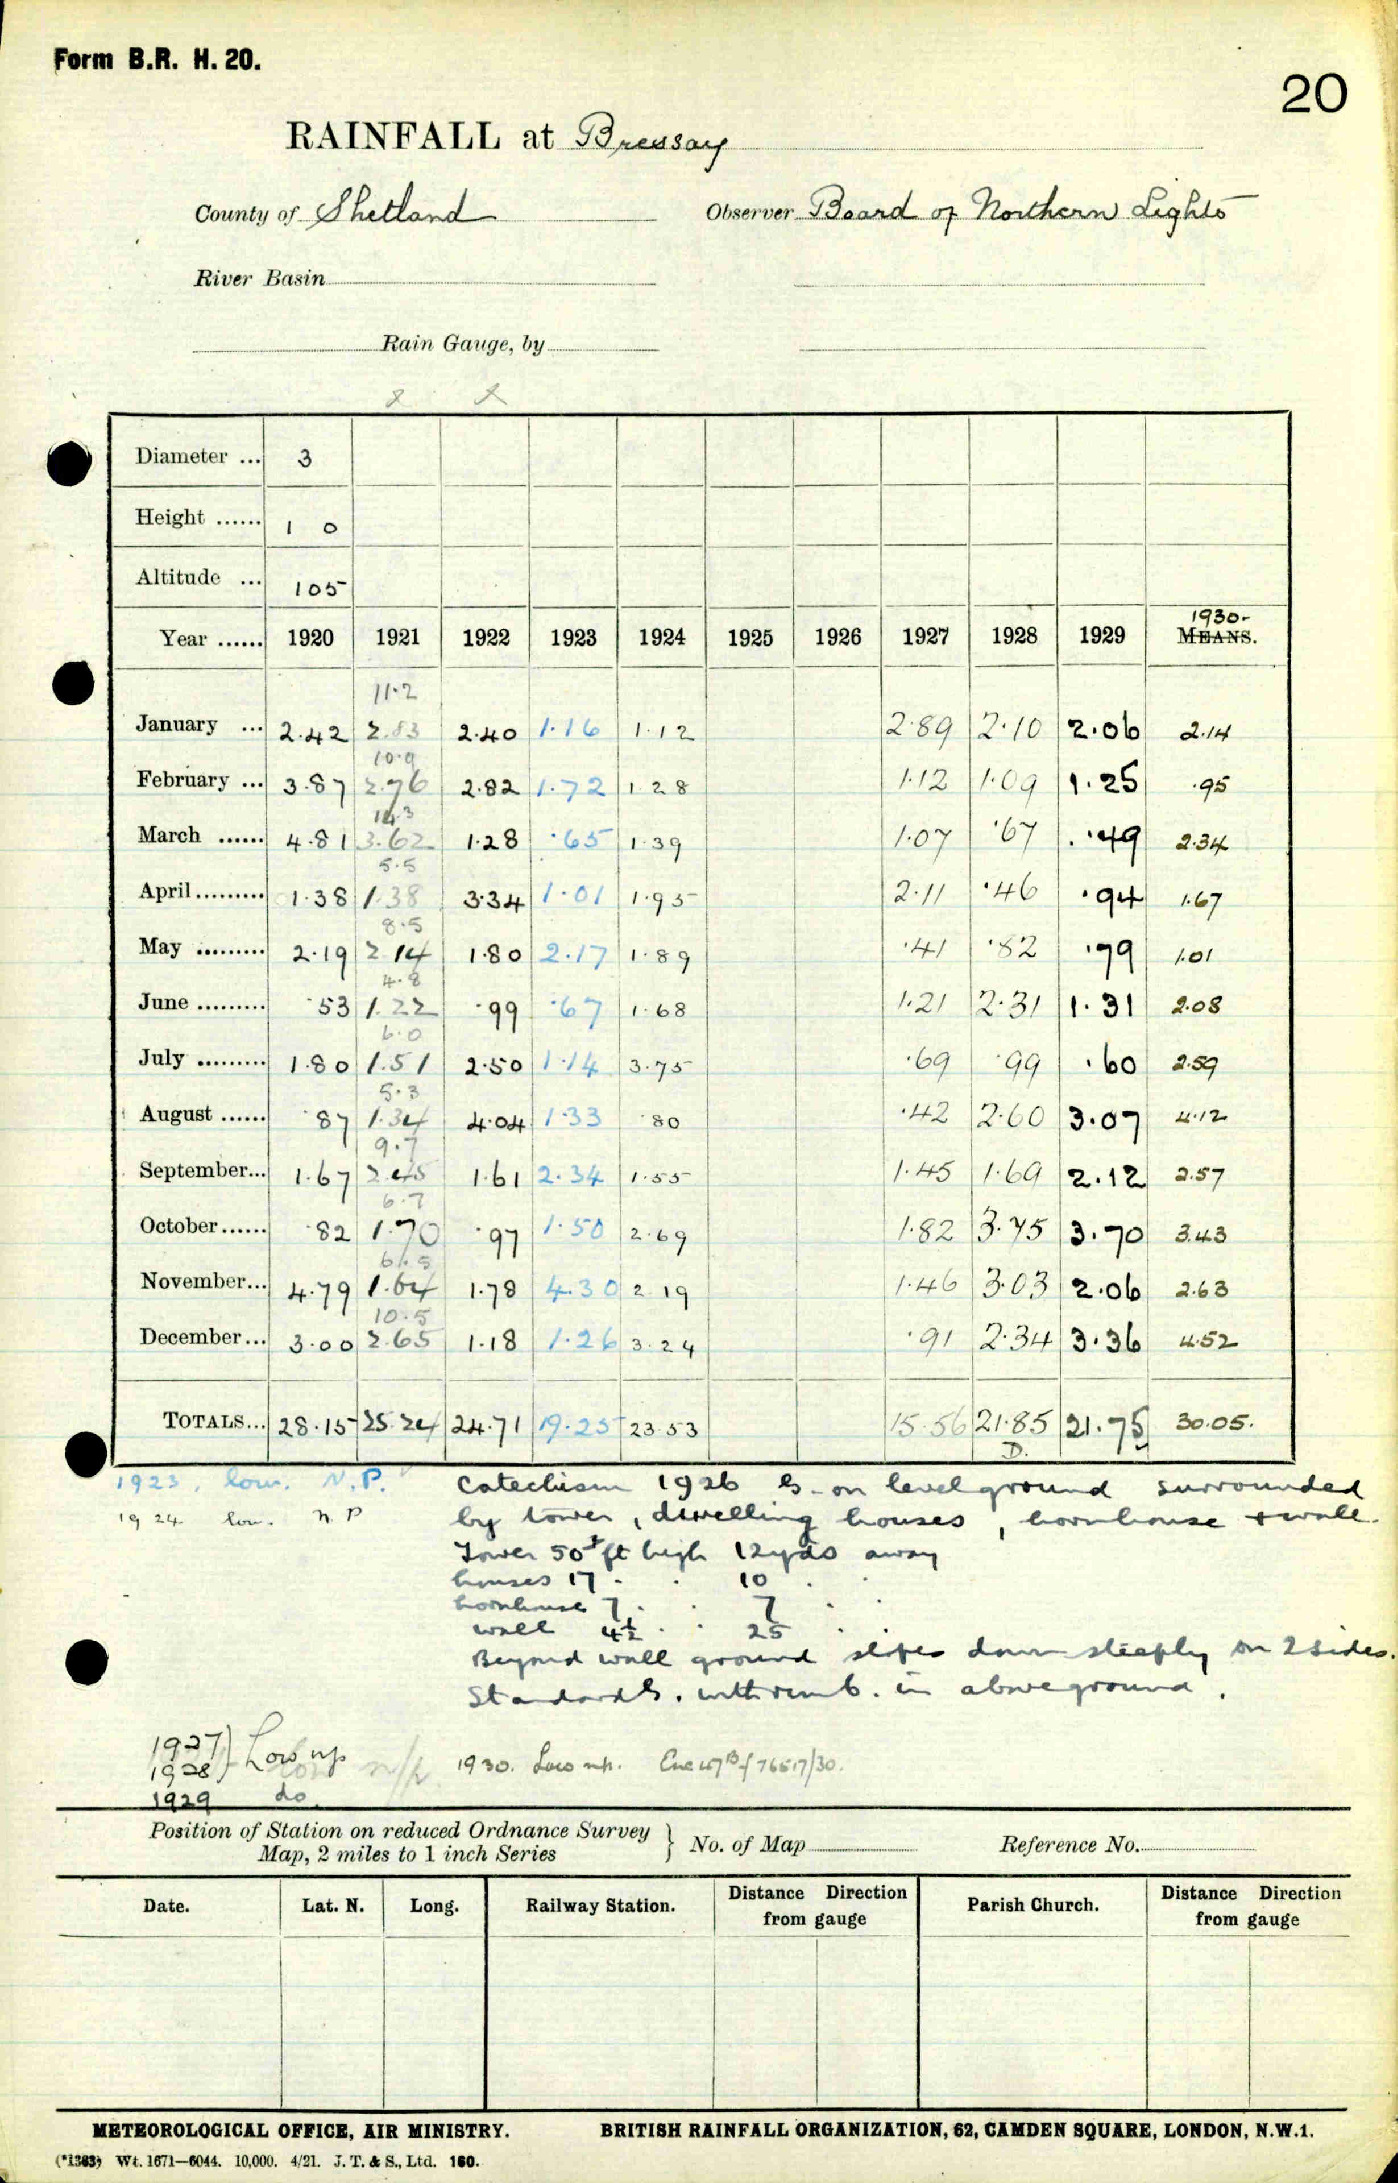 Form B.R. H. 20.
20
RAINFALL at Bressay
County of Shetland Observer Board of Northern Lights
River Basin
Rain Gauge, by
x x
Diameter ... 3
Height ...... 1 0
Altitude ... 105
1930-
Year ...... 1920 1921 1922 1923 1924 1925 1926 1927 1928 1929 MEANS.
11.2
January ... 2.42 2.83 2.40 1.16 1.12 2.89 2.10 2.06 2.14
10.9
February ... 3.87 2.76 2.82 1.72 1.28 1.12 1.09 1.25 .95
14.3
March ...... 4.81 3.62 1.28 .65 1.39 1.07 .67 .49 2.34
5.5
April......... 1.38 1.38 3.34 1.01 1.95 2.11 .46 .94 1.67
8.5
May ......... 2.19 2.14 1.80 2.17 1.89 .41 .82 .79 1.01
4.8
June ......... .53 1.22 .99 .67 1.68 1.21 2.31 1.31 2.08
6.0
July ......... 1.80 1.51 2.50 1.14 3.75 .69 .99 .60 2.59
5.3
August ...... .87 1.34 4.04 1.33 .80 .42 2.60 3.07 4.12
9.7
September... 1.67 2.45 1.61 2.34 1.55 1.45 1.69 2.12 2.57
6.7
October...... .82 1.70 .97 1.50 2.69 1.82 3.75 3.70 3.43
6.5
November... 4.79 1.64 1.78 4.30 2.19 1.46 3.03 2.06 2.63
10.5
December... 3.00 2.65 1.18 1.26 3.24 .91 2.34 3.36 4.52
TOTALS... 28.15 25.24 24.71 19.25 23.53 15.56 21.85 21.75 30.05.
D.
1923, low. N.P. Catechism 1926 G. on level ground surrounded
1924 low. N.P by tower, dwelling houses, hornhouse + wall.
Tower 50 ft high 12 yds away
houses 17 . . 10 . .
hornhouse 7 . . 7 . .
wall 4½ . . 25 . .
Beyond wall ground slopes down steeply on 2 sides.
Standard G. with rim 6. in above ground.
1927) Low np
1928) 1930. Low np.
1929 do.
Position of Station on reduced Ordnance Survey
Map, 2 miles to 1 inch Series } No. of Map Reference No.
Date. Lat. N. Long. Railway Station. Distance Direction from gauge Parish Church. Distance Direction from gauge
METEOROLOGICAL OFFICE, AIR MINISTRY. BRITISH RAINFALL ORGANIZATION, 62, CAMDEN SQUARE, LONDON, N.W.1.
(*1383) Wt. 1671—6044. 10,000. 4/21. J. T. & S., Ltd. 160.